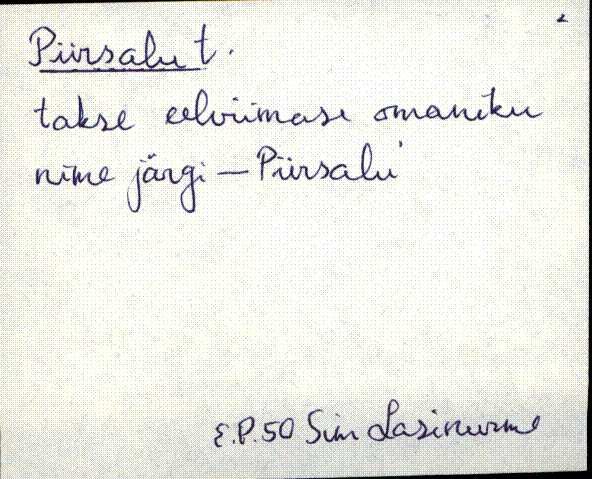 2
Piirsalu t.
takse eelviimase omaniku
nime järgi – Piirsalu
E.P.50 Sim Lasinurme